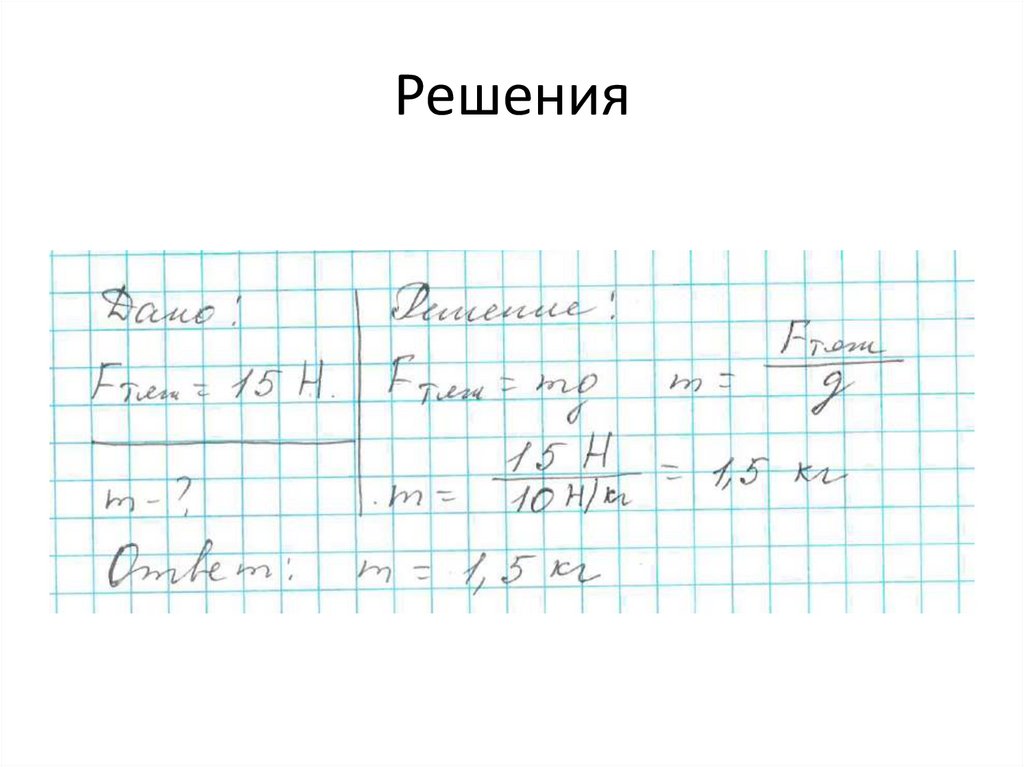 Решения
Дано:
Fтяж = 15 Н.
m - ?
Решение:
Fтяж = mg m = Fтяж / g
m = 15 Н / 10 Н/кг = 1,5 кг
Ответ: m = 1,5 кг